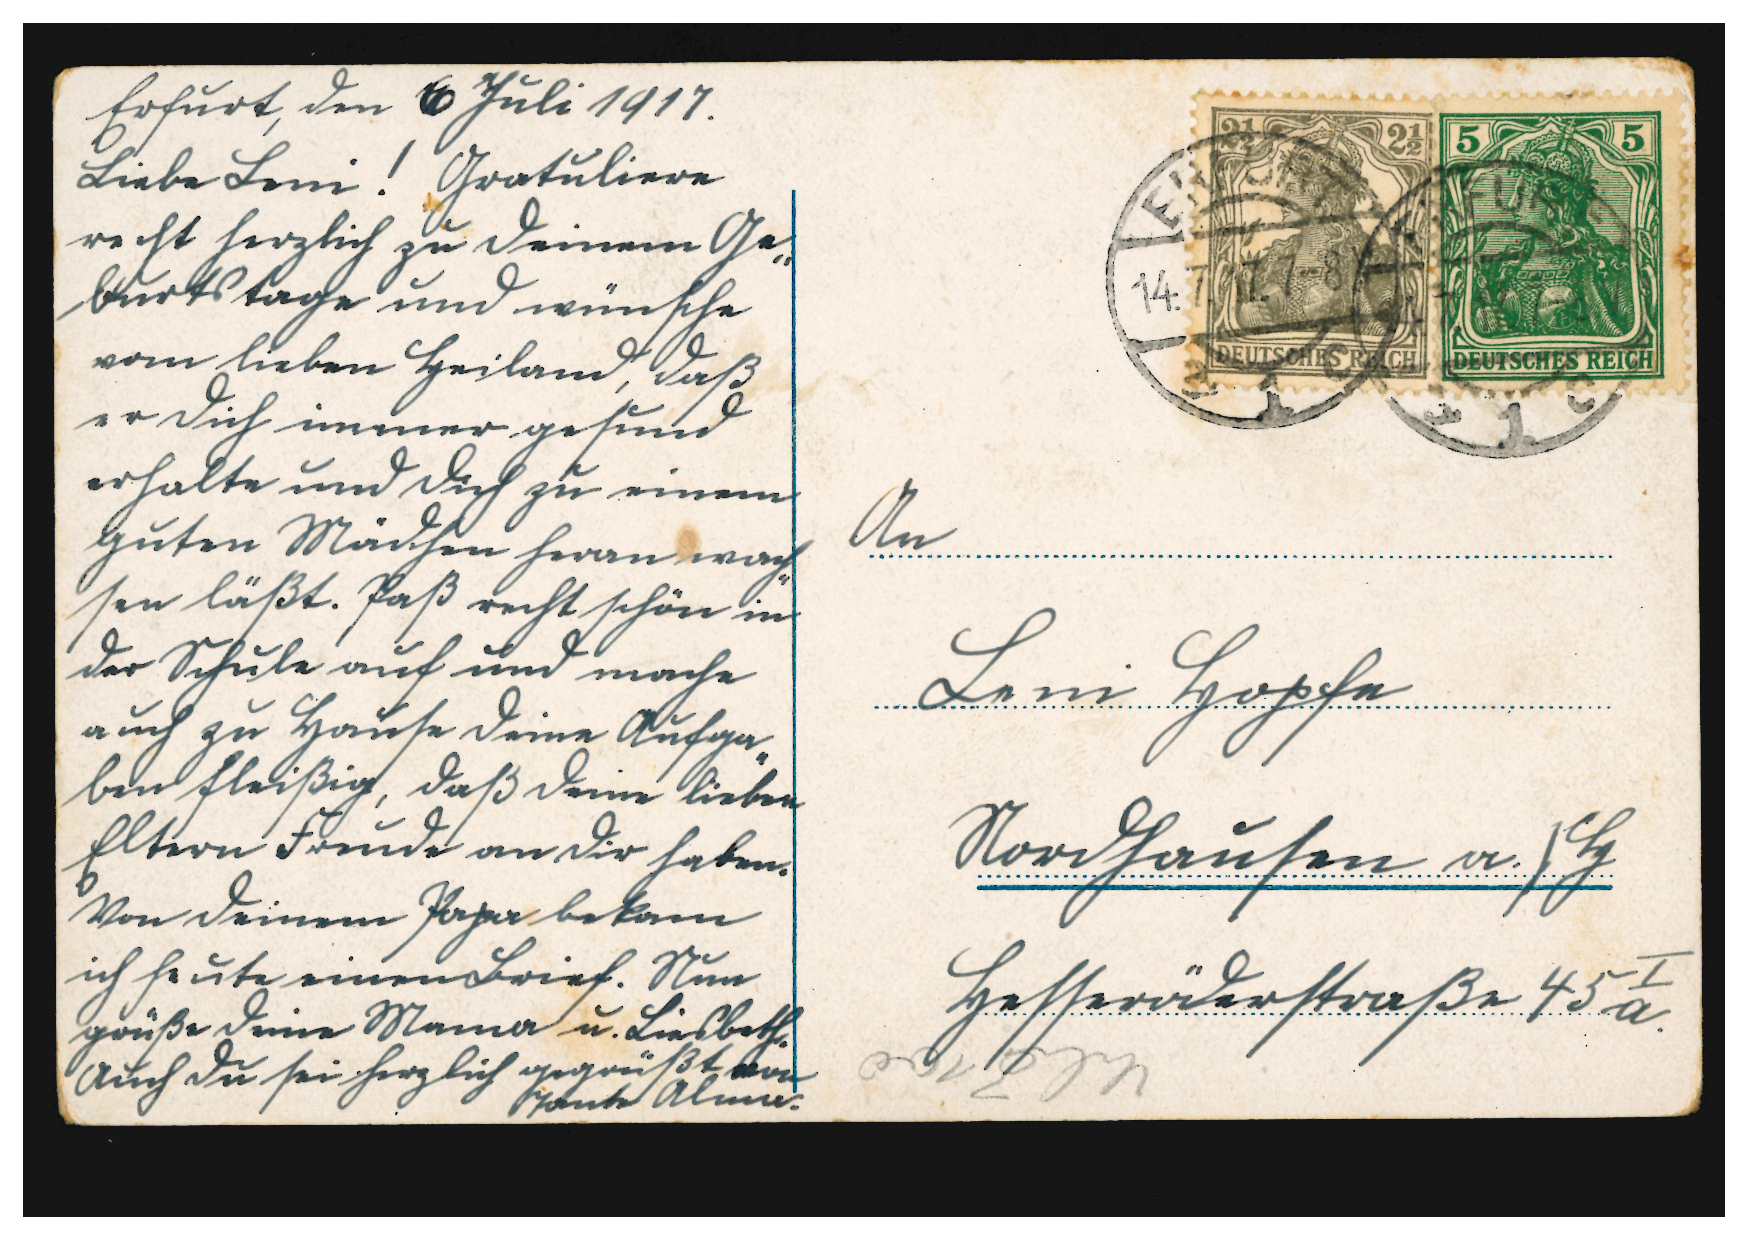 Erfurt, den 6 Juli 1917.
Liebe Leni! Gratuliere
recht herzlich zu Deinem Ge„
burtstage und wünsche
vom lieben Heiland, daß
er Dich immer gesund
erhalte und Dich zu einem
guten Mädchen heran wach„
sen läßt. Paß recht schön in
der Schule auf und mache
auch zu Hause Deine Aufga„
ben fleißig, daß Deine lieben
Eltern Freude an Dir haben.
Von Deinem Papa bekam
ich heute einen Brief. Nun
grüße Deine Mama u. Liesbeth.
Auch Du sei herzlich gegrüßt von
Tante Alma.
2½ 2½
DEUTSCHES REICH
5 5
DEUTSCHES REICH
ERFURT
14.7.17. 7-8
1
ERFURT
1
An
Leni Hopfe
Nordhausen a./H
Hesseröderstraße 45 I
a.